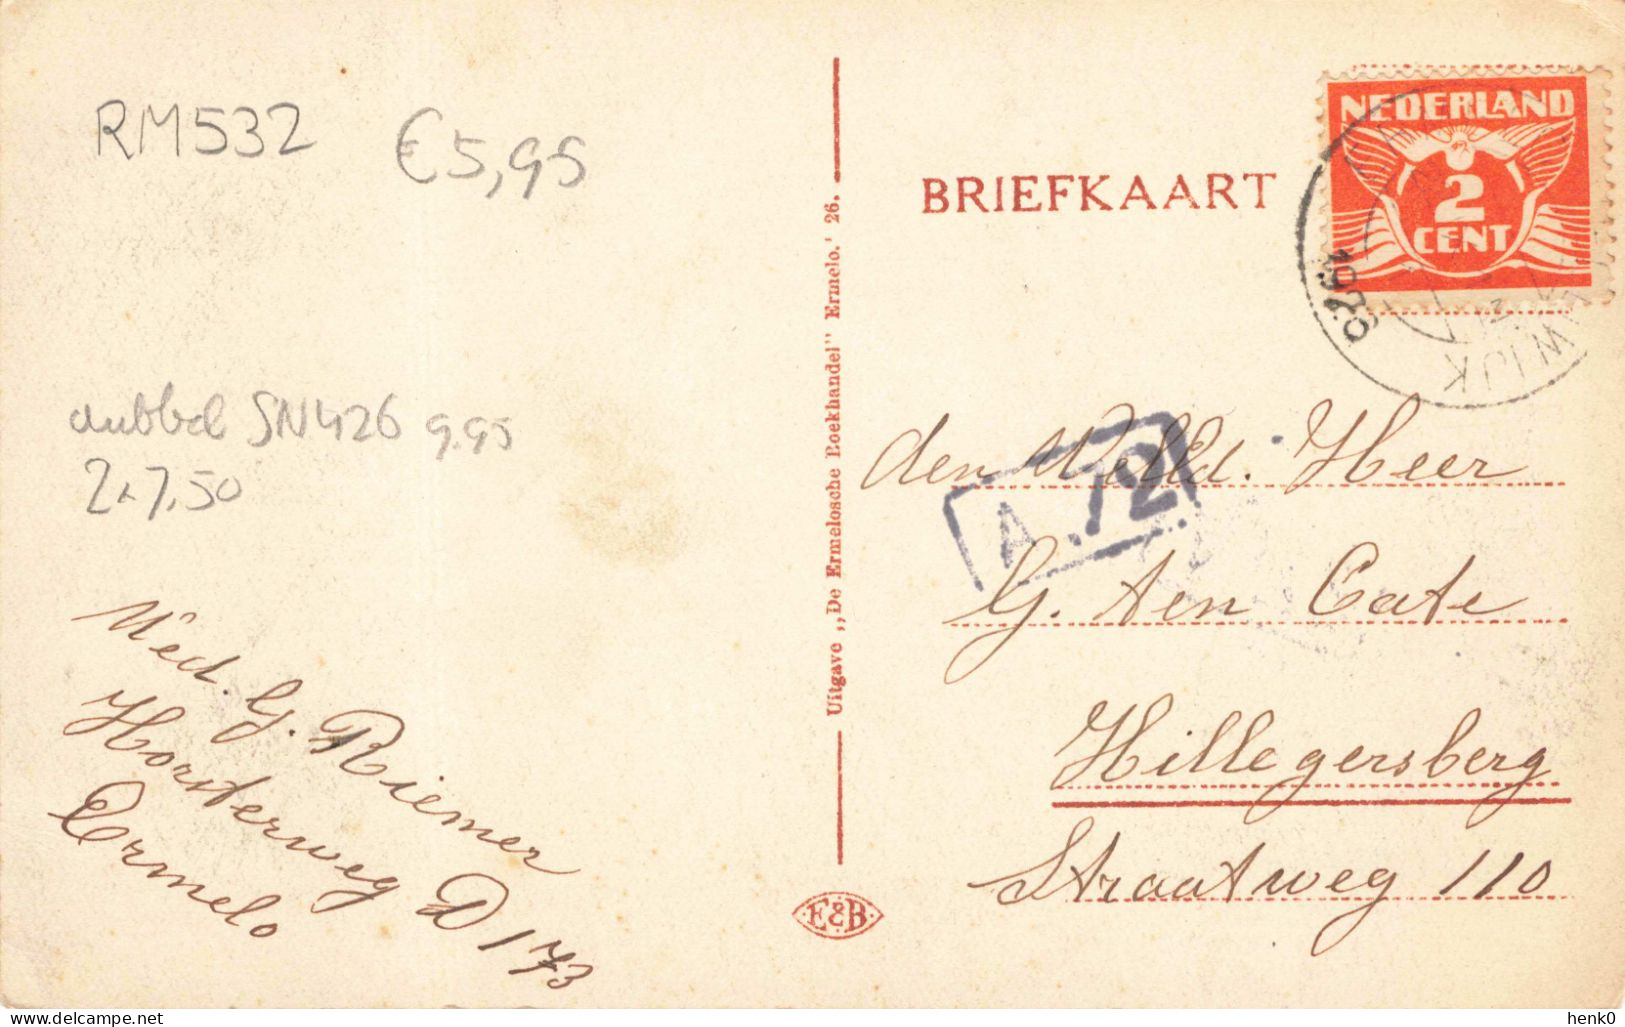 RM532
€5,95
dubbel SN426 9.95
2 x 7,50
Med. G. Riemer
Horsterweg D 173
Ermelo
Uitgave „De Ermelosche Boekhandel" Ermelo.' 26.
E&B
BRIEFKAART
NEDERLAND
2
CENT
1926
WIJK
A 12
den Heer
G. ten Cate
Hillegersberg
Straatweg 110
© delcampe.net
henk0